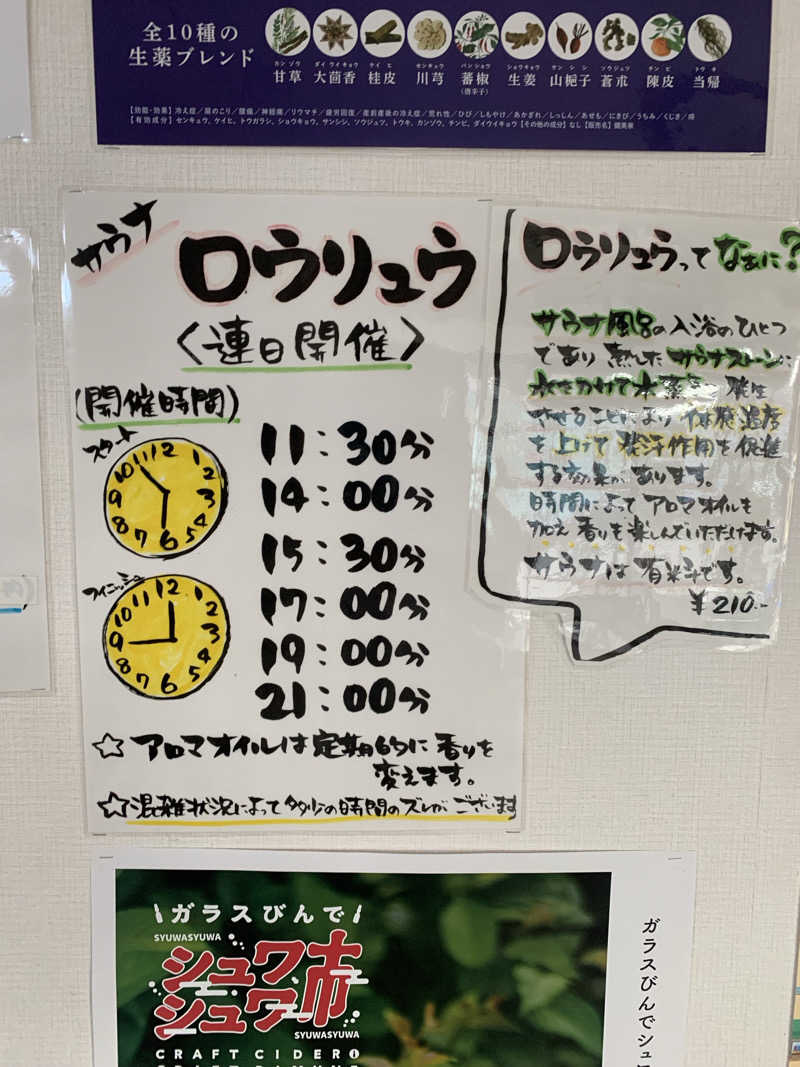 全10種の
生薬ブレンド
カンゾウ ダイウイキョウ ケイヒ センキュウ バンショウ ショウキョウ サンシシ ソウジュツ チンピ トウキ
甘草 大茴香 桂皮 川芎 蕃椒 生姜 山梔子 蒼朮 陳皮 当帰
(唐辛子)
【効能・効果】冷え症/肩のこり/腰痛/神経痛/リウマチ/疲労回復/産前産後の冷え症/荒れ性/ひび/しもやけ/あかぎれ/しっしん/あせも/にきび/うちみ/くじき/痔
【有効成分】センキュウ、ケイヒ、トウガラシ、ショウキョウ、サンシシ、ソウジュツ、トウキ、カンゾウ、チンピ、ダイウイキョウ【その他の成分】なし【販売名】
サウナ
ロウリュウ
〈連日開催〉
(開催時間)
スタート
12 1 2 3 4 5 6 7 8 9 10 11
フィニッシュ
12 1 2 3 4 5 6 7 8 9 10 11
11:30分
14:00分
15:30分
17:00分
19:00分
21:00分
☆アロマオイルは定期的に香りを
変えます。
☆混雑状況によって多少の時間のズレがございます
ロウリュウってなぁに?
サウナ風呂の入浴のひとつ
であり熱したサウナストーンに
水をかけて水蒸気を発生
させることにより体感温度
を上げて発汗作用を促進
する効果があります。
時間によってアロマオイルを
加え香りを楽しんでいただけます。
サウナは有料です。
¥210.-
ガラスびんで
SYUWASYUWA
シュワ
シュワ市
SYUWASYUWA
CRAFT CIDER
ガラスびんでシュワ